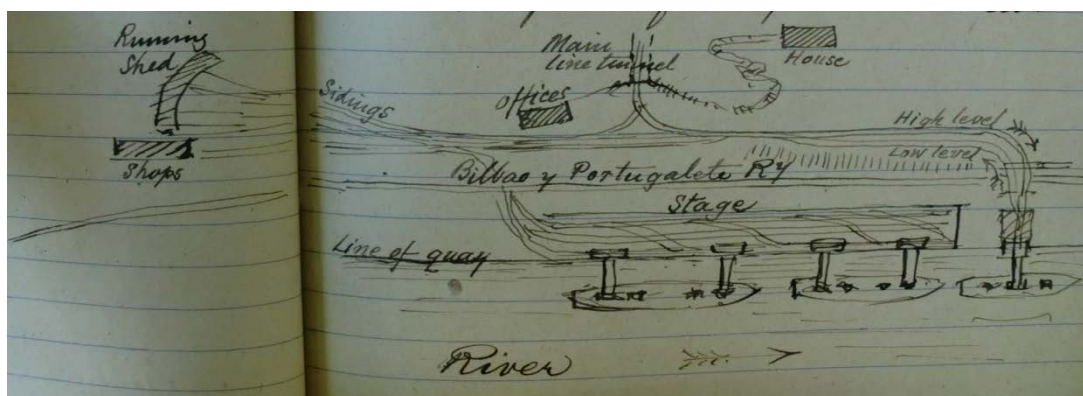 Running
Shed
Shops
Sidings
Offices
Main
line tunnel
House
High level
Low level
Bilbao y Portugalete Ry
Stage
Line of quay
River